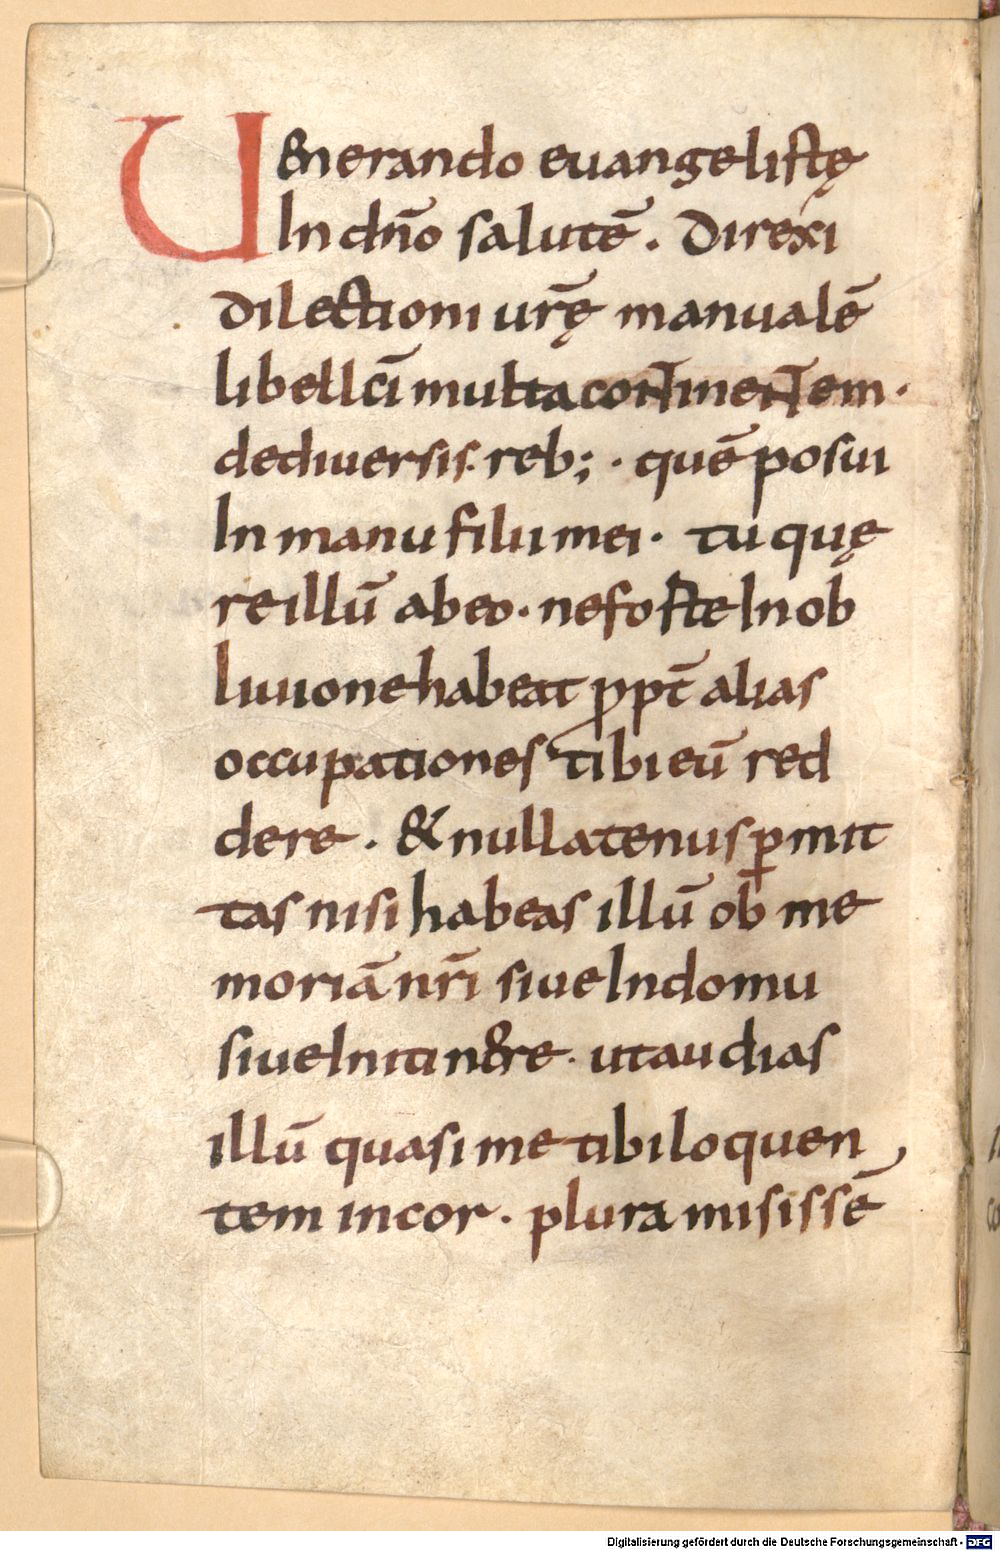 Uenerando euangelistę
In dn̄o salutē. Direxi
dilectioni ur̄ę manualē
libellū multa continentem·
dediuersis. reb; · quē posui
In manu filii mei· tu quę
re illū abeo· ne foste In ob
liuione habeat ꝓpt̄ alias
occupationes tibi eū red
dere. & nullatenus ꝑmit
tas nisi habeas illū ob me
moriā nr̄i siue In domu
siue In itinere· ut audias
illū quasi me tibi loquen
tem in cor· plura misissē
Digitalisierung gefördert durch die Deutsche Forschungsgemeinschaft - DFG